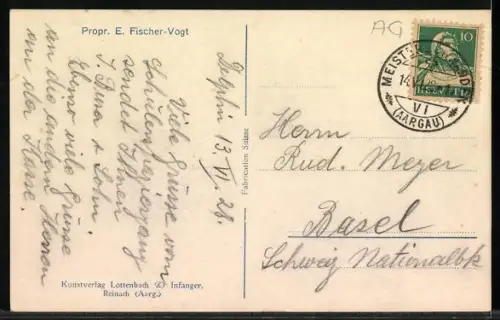 Propr. E. Fischer-Vogt
13. VI. 28.
Viele Grüsse vom
Schülerspaziergang
sendet Ihnen
& Sohn.
Ebenso viele Grüsse
an die andern Herren
an der Kasse.
Kunstverlag Lottenbach & Infanger,
Reinach (Aarg.)
Fabrication Suisse
AG
10
HELVETIA
VI
(AARGAU)
Herrn
Rud. Meyer
Basel
Schweiz Nationalbk